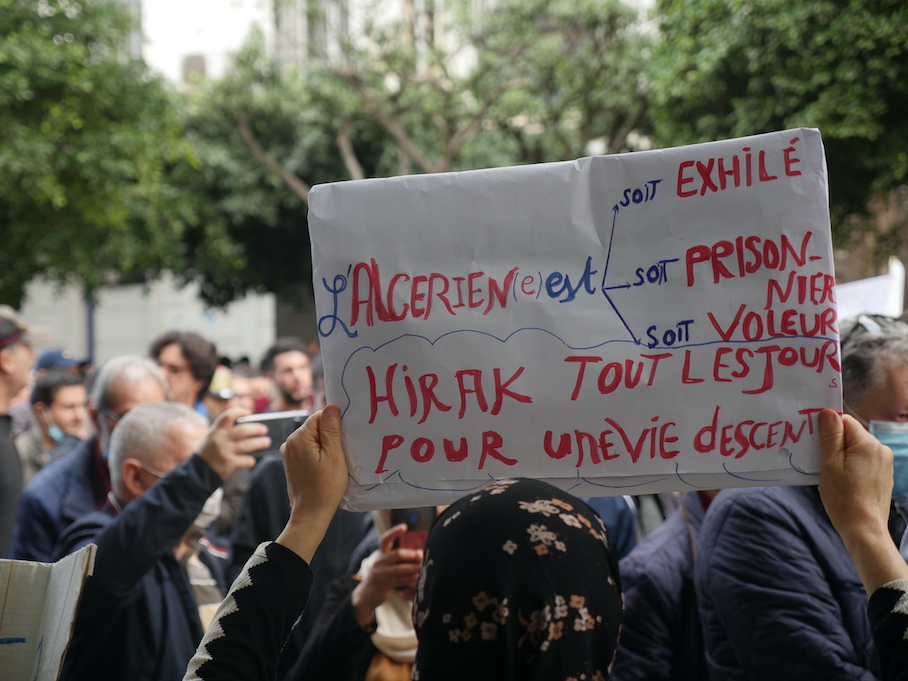 L'ALGERIEN(e) est
soit EXHILÉ
soit PRISON-
NIER
soit VOLEUR
HIRAK TOUT LES JOURS
POUR UNE VIE DESCENT